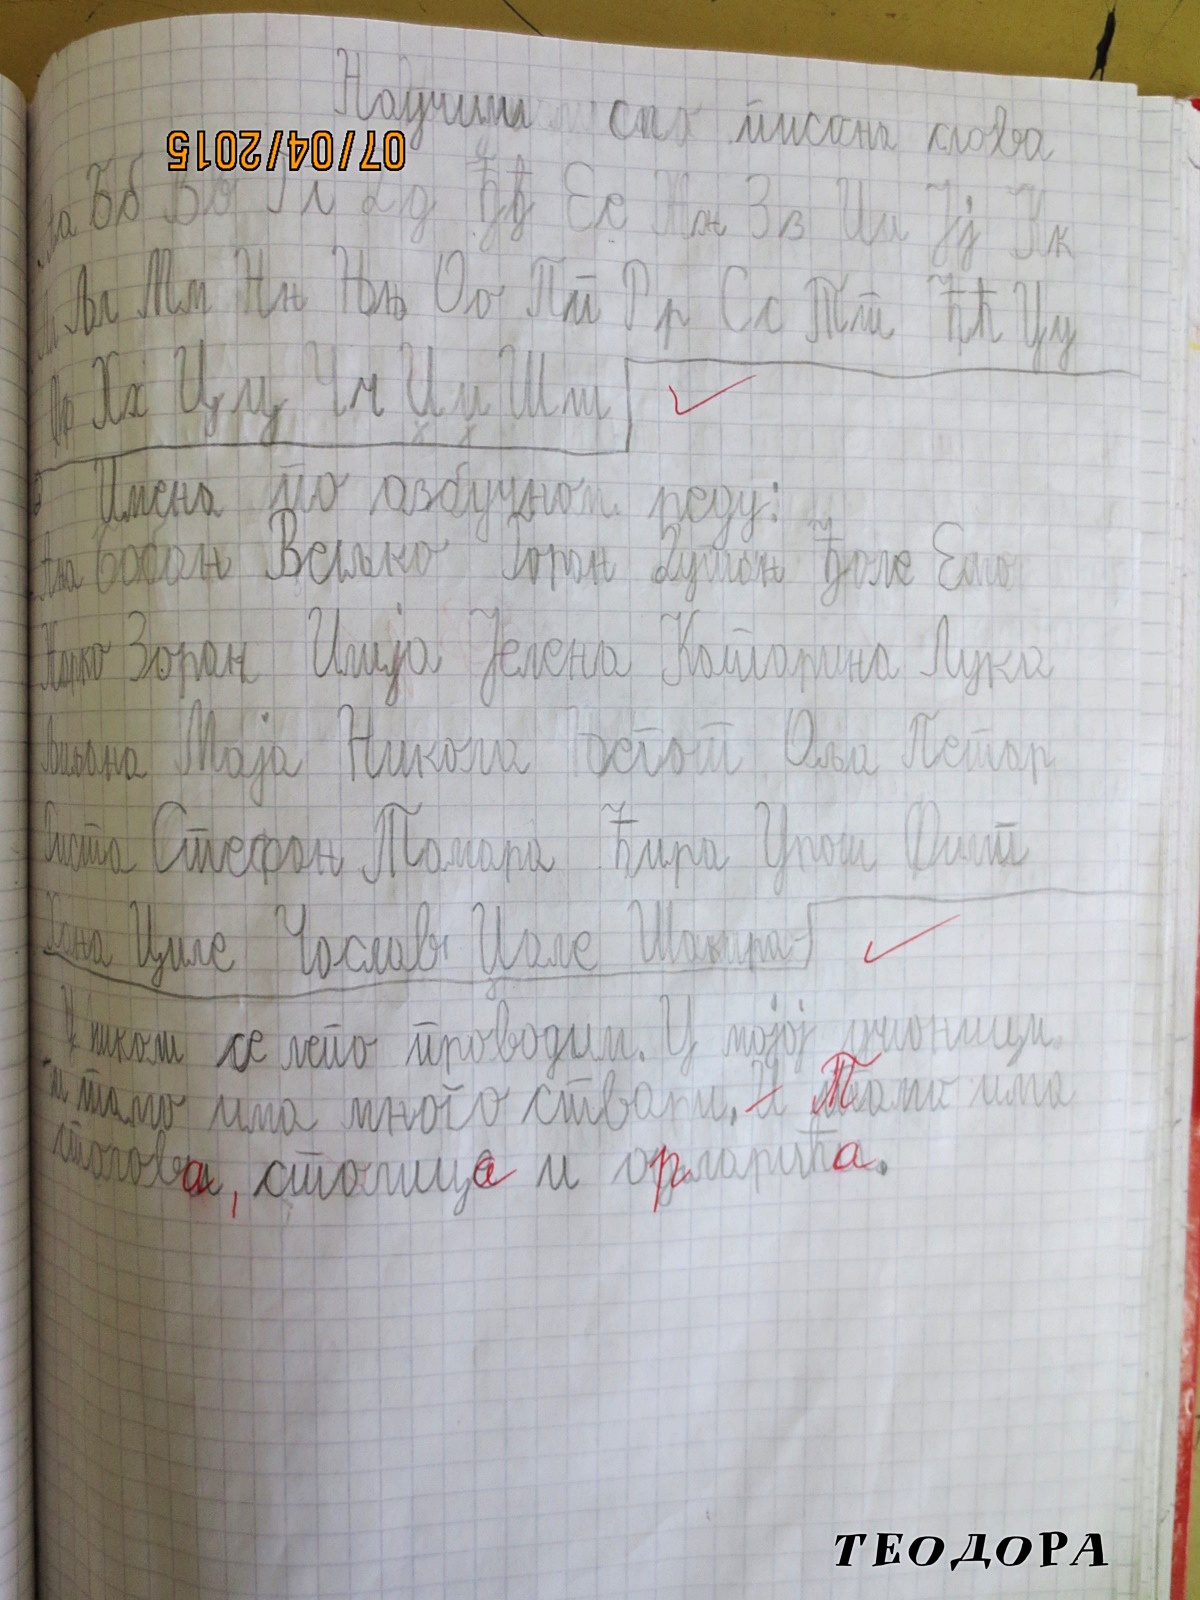 Научили смо писана слова
07/04/2015
Аа Бб Вв Гг Дд Ђђ Ее Жж Зз Ии Јј Кк
Лл Љљ Мм Нн Њњ Оо Пп Рр Сс Тт Ћћ Уу
Фф Хх Цц Чч Џџ Шш
Имена по азбучном реду:
Ана Бобан Вељко Горан Душан Ђоле Ема
Жарко Зоран Илија Јелена Катарина Лука
Љиљана Маја Никола Његош Оља Петар
Риста Стефан Тамара Ћира Урош Филип
Хана Циле Часлав Џоле Шакира
У школи се лепо проводим. У мојој учионици
и тамо има много ствари. и Тамо има
столова, столица и ормарића.
ТЕОДОРА